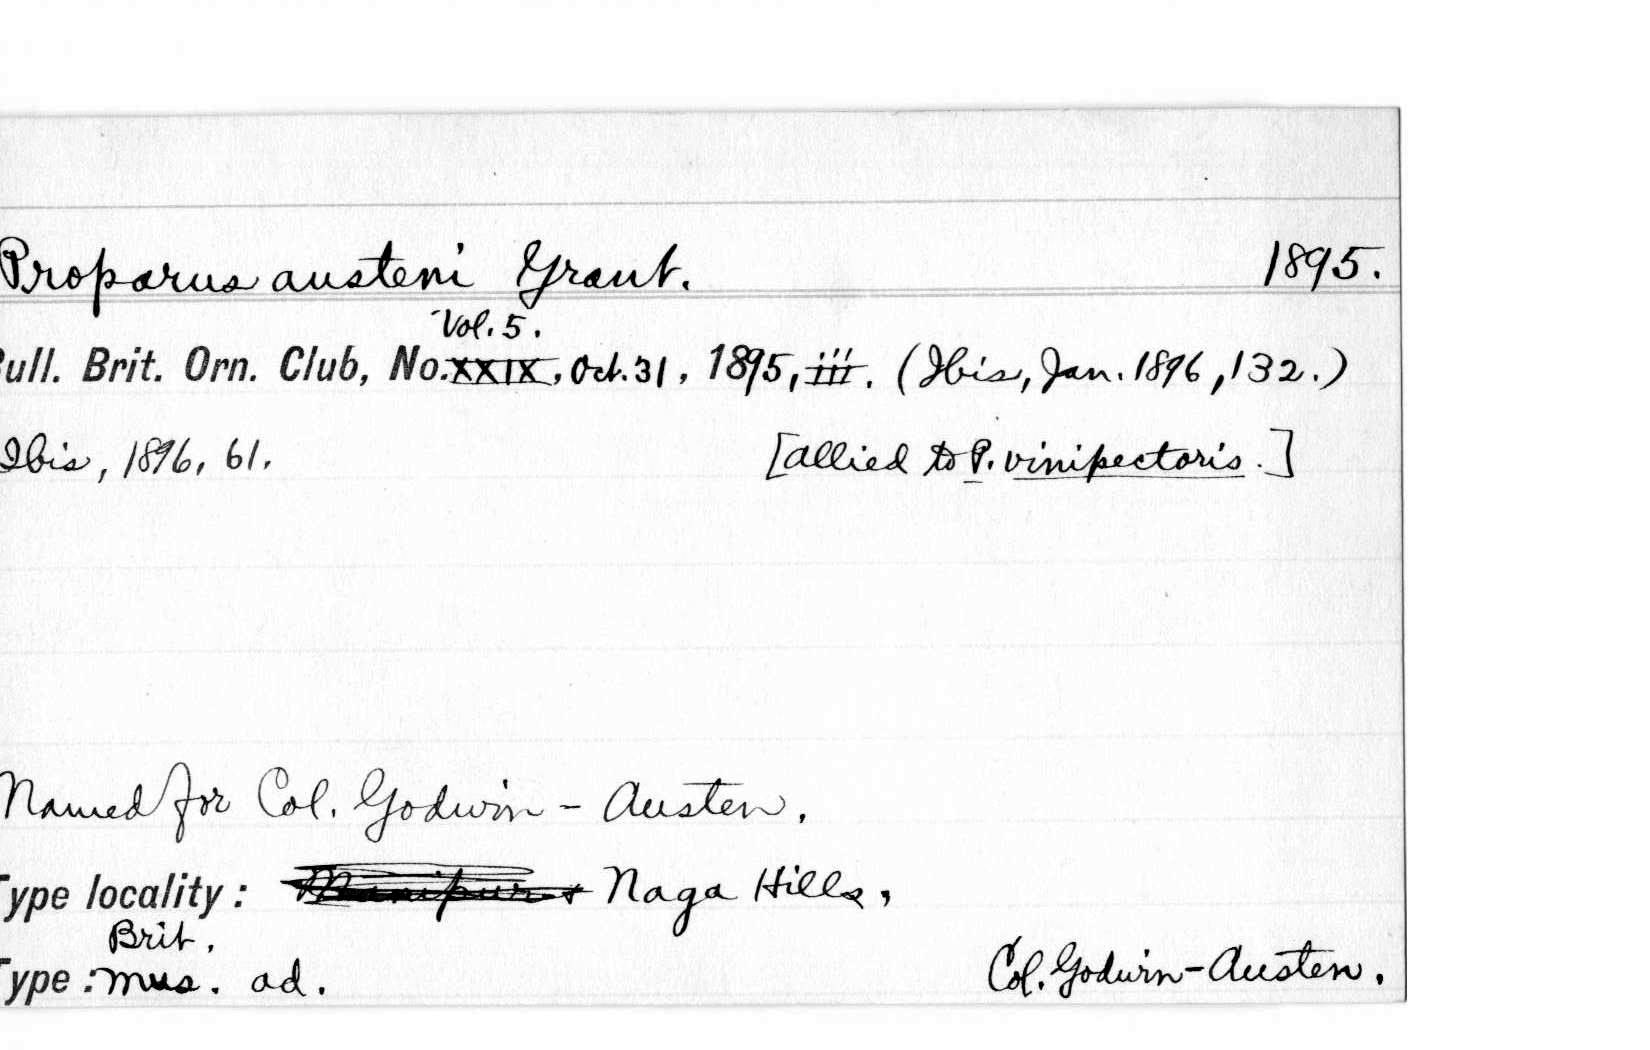 Proparus austeni Grant. 1895.
Vol. 5.
Bull. Brit. Orn. Club, No. XXIX, Oct. 31, 1895, iii. (Ibis, Jan. 1896, 132.)
Ibis, 1896, 61. [allied to P. vinipectoris.]
Named for Col. Godwin-Austen.
Type locality: Manipur & Naga Hills,
Brit.
Type: mus. ad. Col. Godwin-Austen.